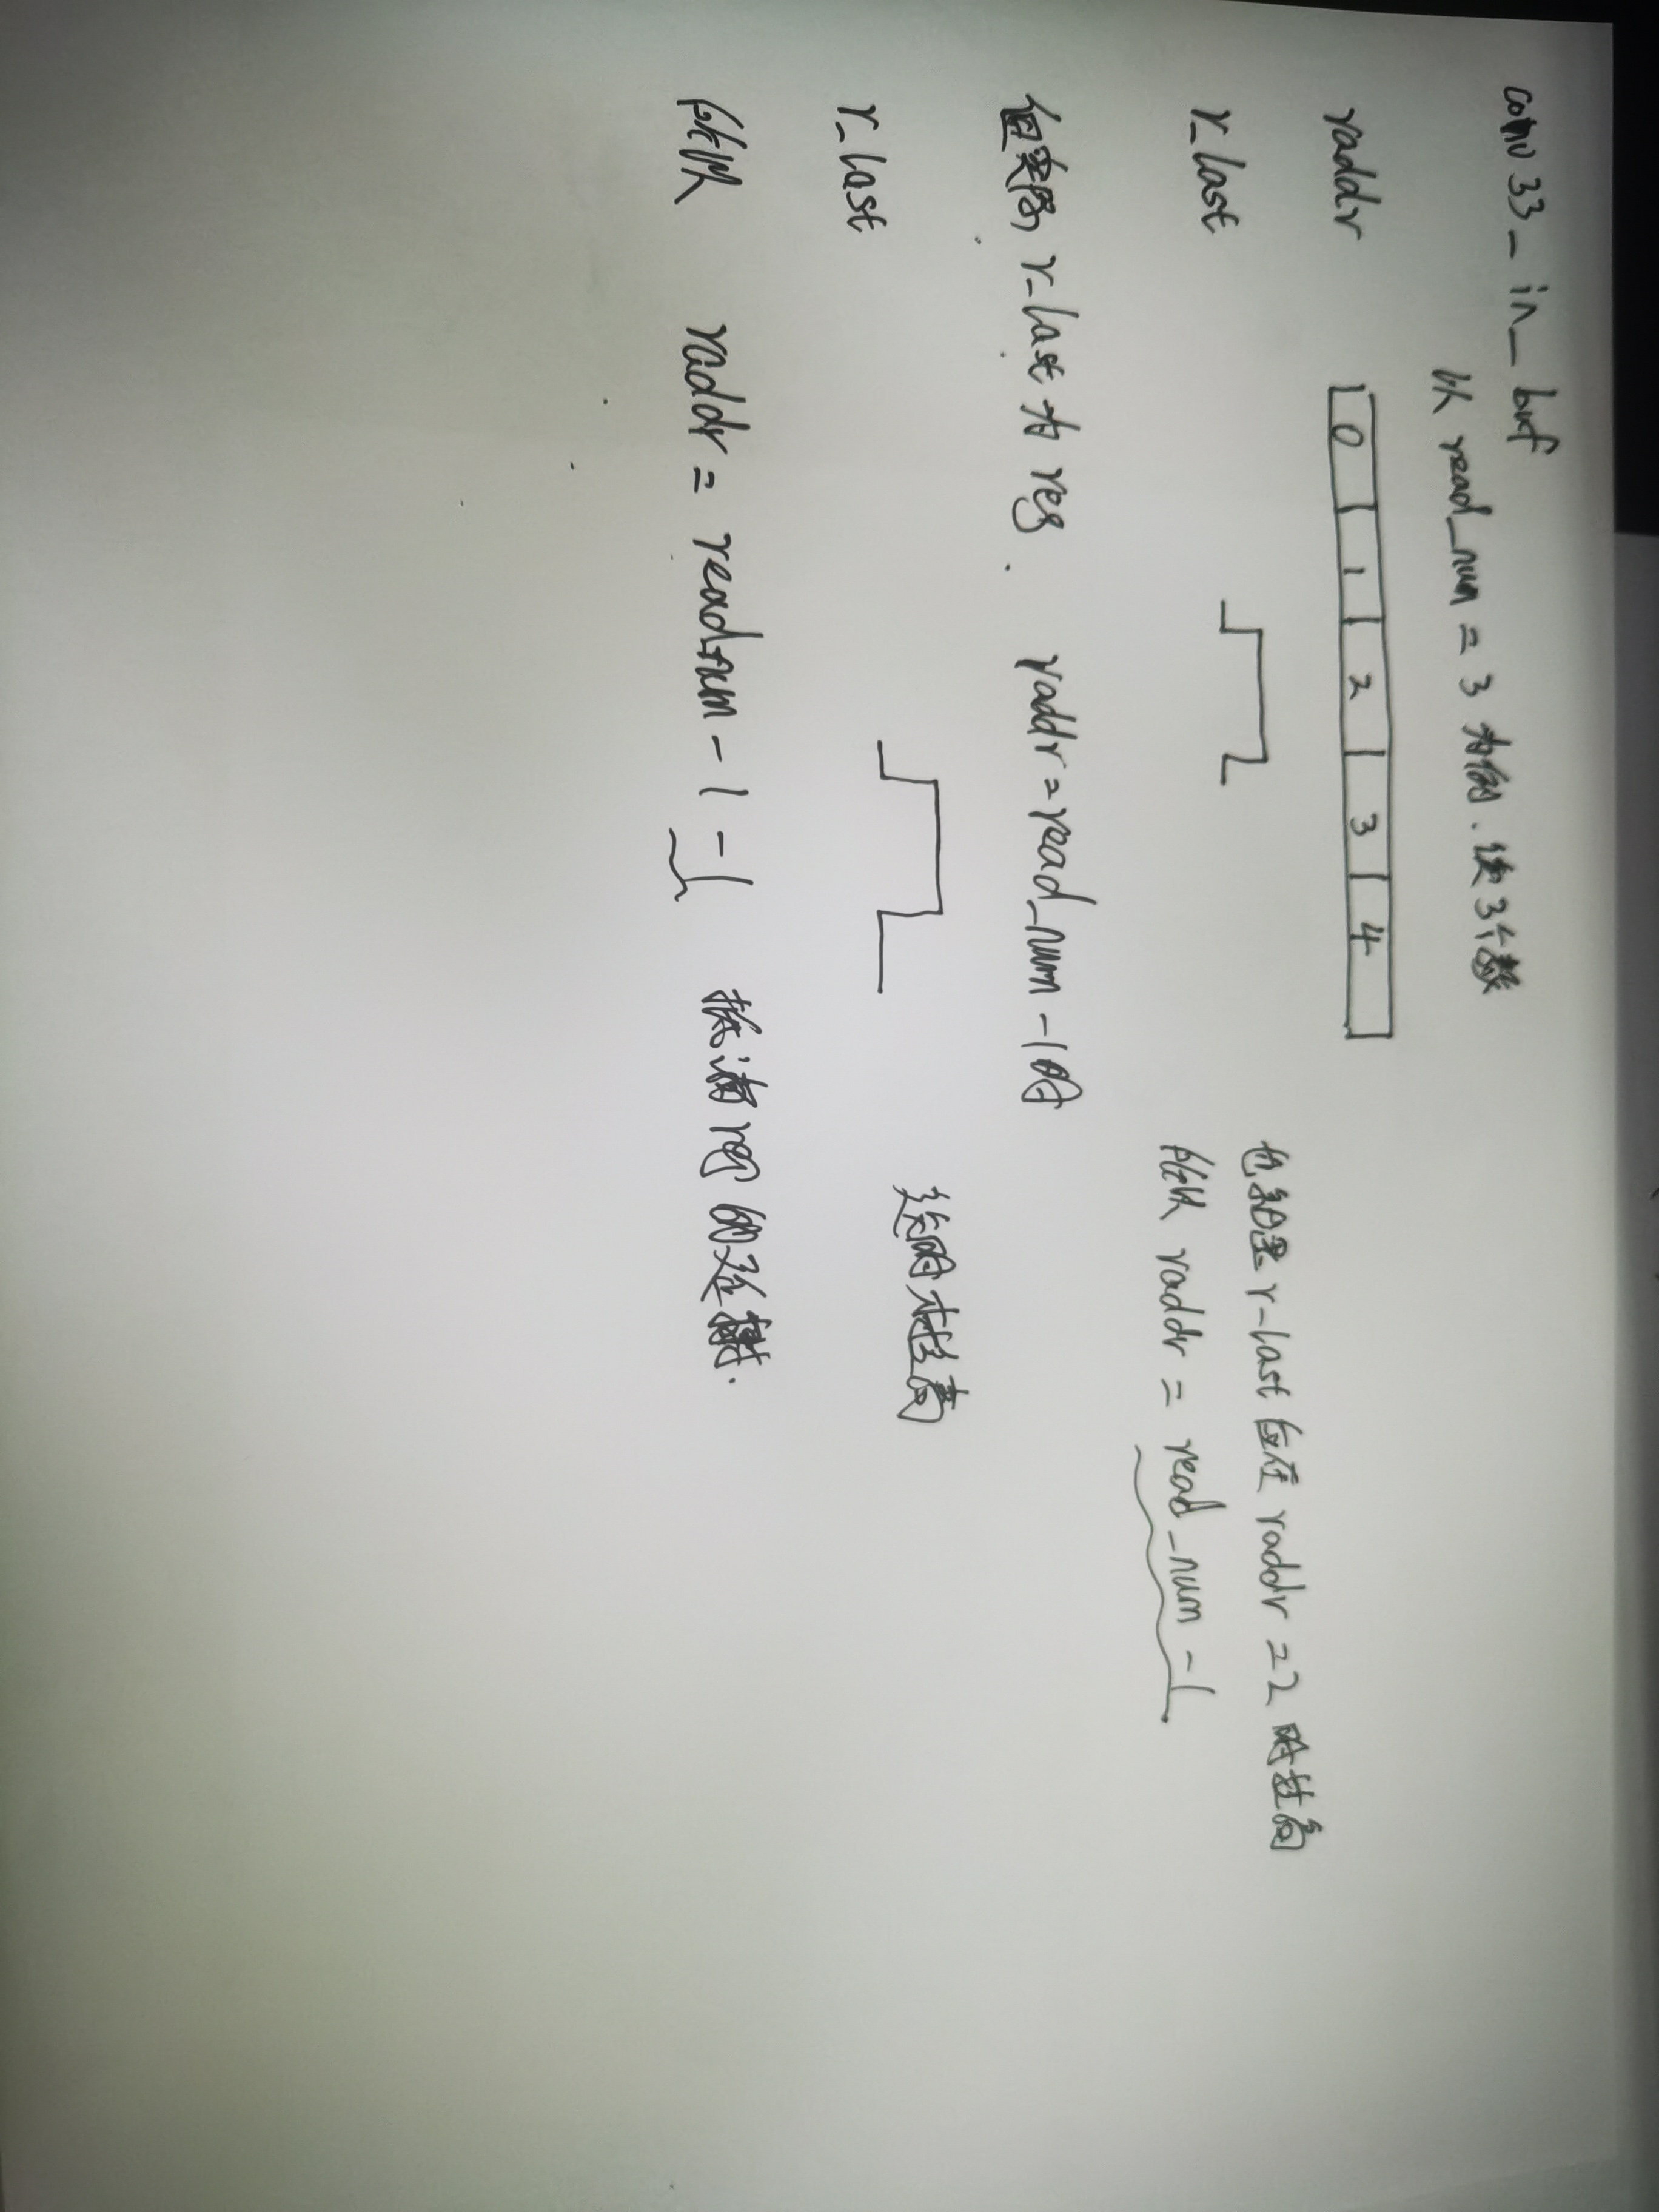 conv33_in_buf
以 read_num = 3 为例. 读3个数
raddr 0 1 2 3 4
也就是 r_last 应在 raddr = 2 时拉高
r_last
所以 raddr = read_num - 1
但实际 r_last 为 reg. raddr = read_num - 1时
这时才拉高
r_last
所以 raddr = readnum - 1 - 1 抵消 reg 的延时.